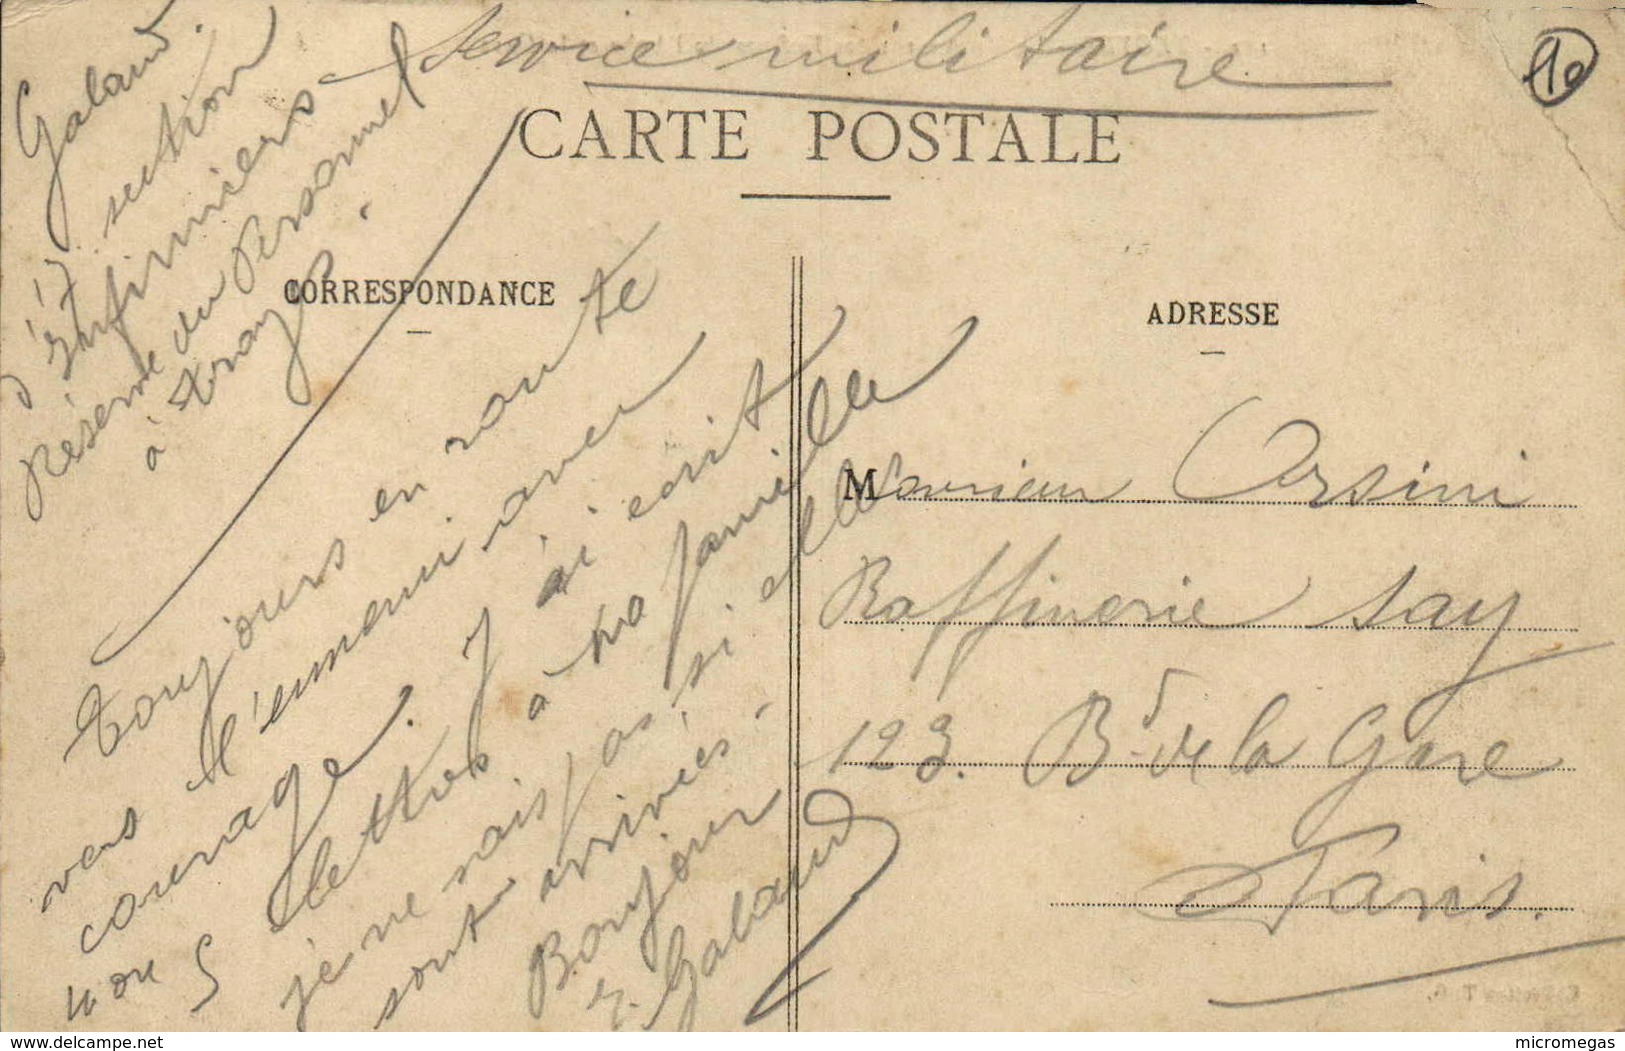 Service militaire
10
CARTE POSTALE
Galaud.
17 section
d'Infirmiers
Réserve du Personnel
à Troyes.
CORRESPONDANCE
Toujours en route
vers l'ennemi avec
courage. J'ai écrit
4 ou 5 lettres à ma famille
je ne sais pas si elles
sont arrivées.
Bonjour
Galaud
ADRESSE
Monsieur Orsini
Raffinerie Say
123. Bd de la Gare
Paris.
www.delcampe.net
micromegas